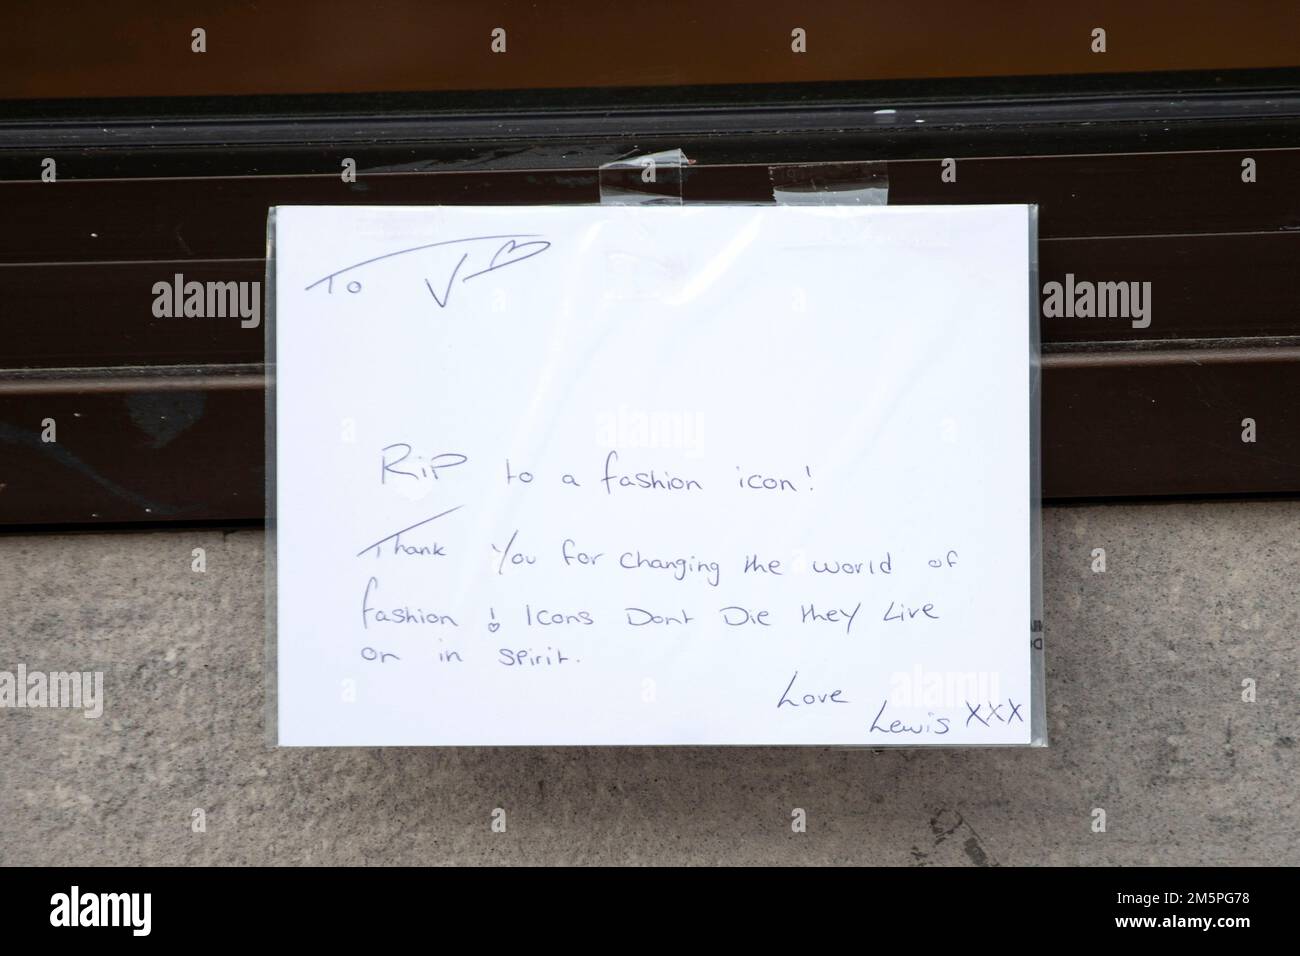 To V
RiP to a fashion icon!
Thank You for changing the world of
fashion! Icons Dont Die they Live
on in spirit.
Love
Lewis XXX
alamy
Image ID: 2M5PG78
www.alamy.com